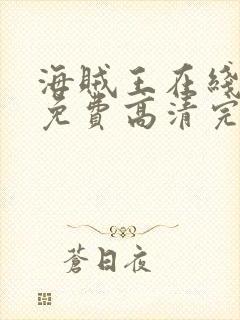 海贼王在綫
免費高清完
蒼日夜